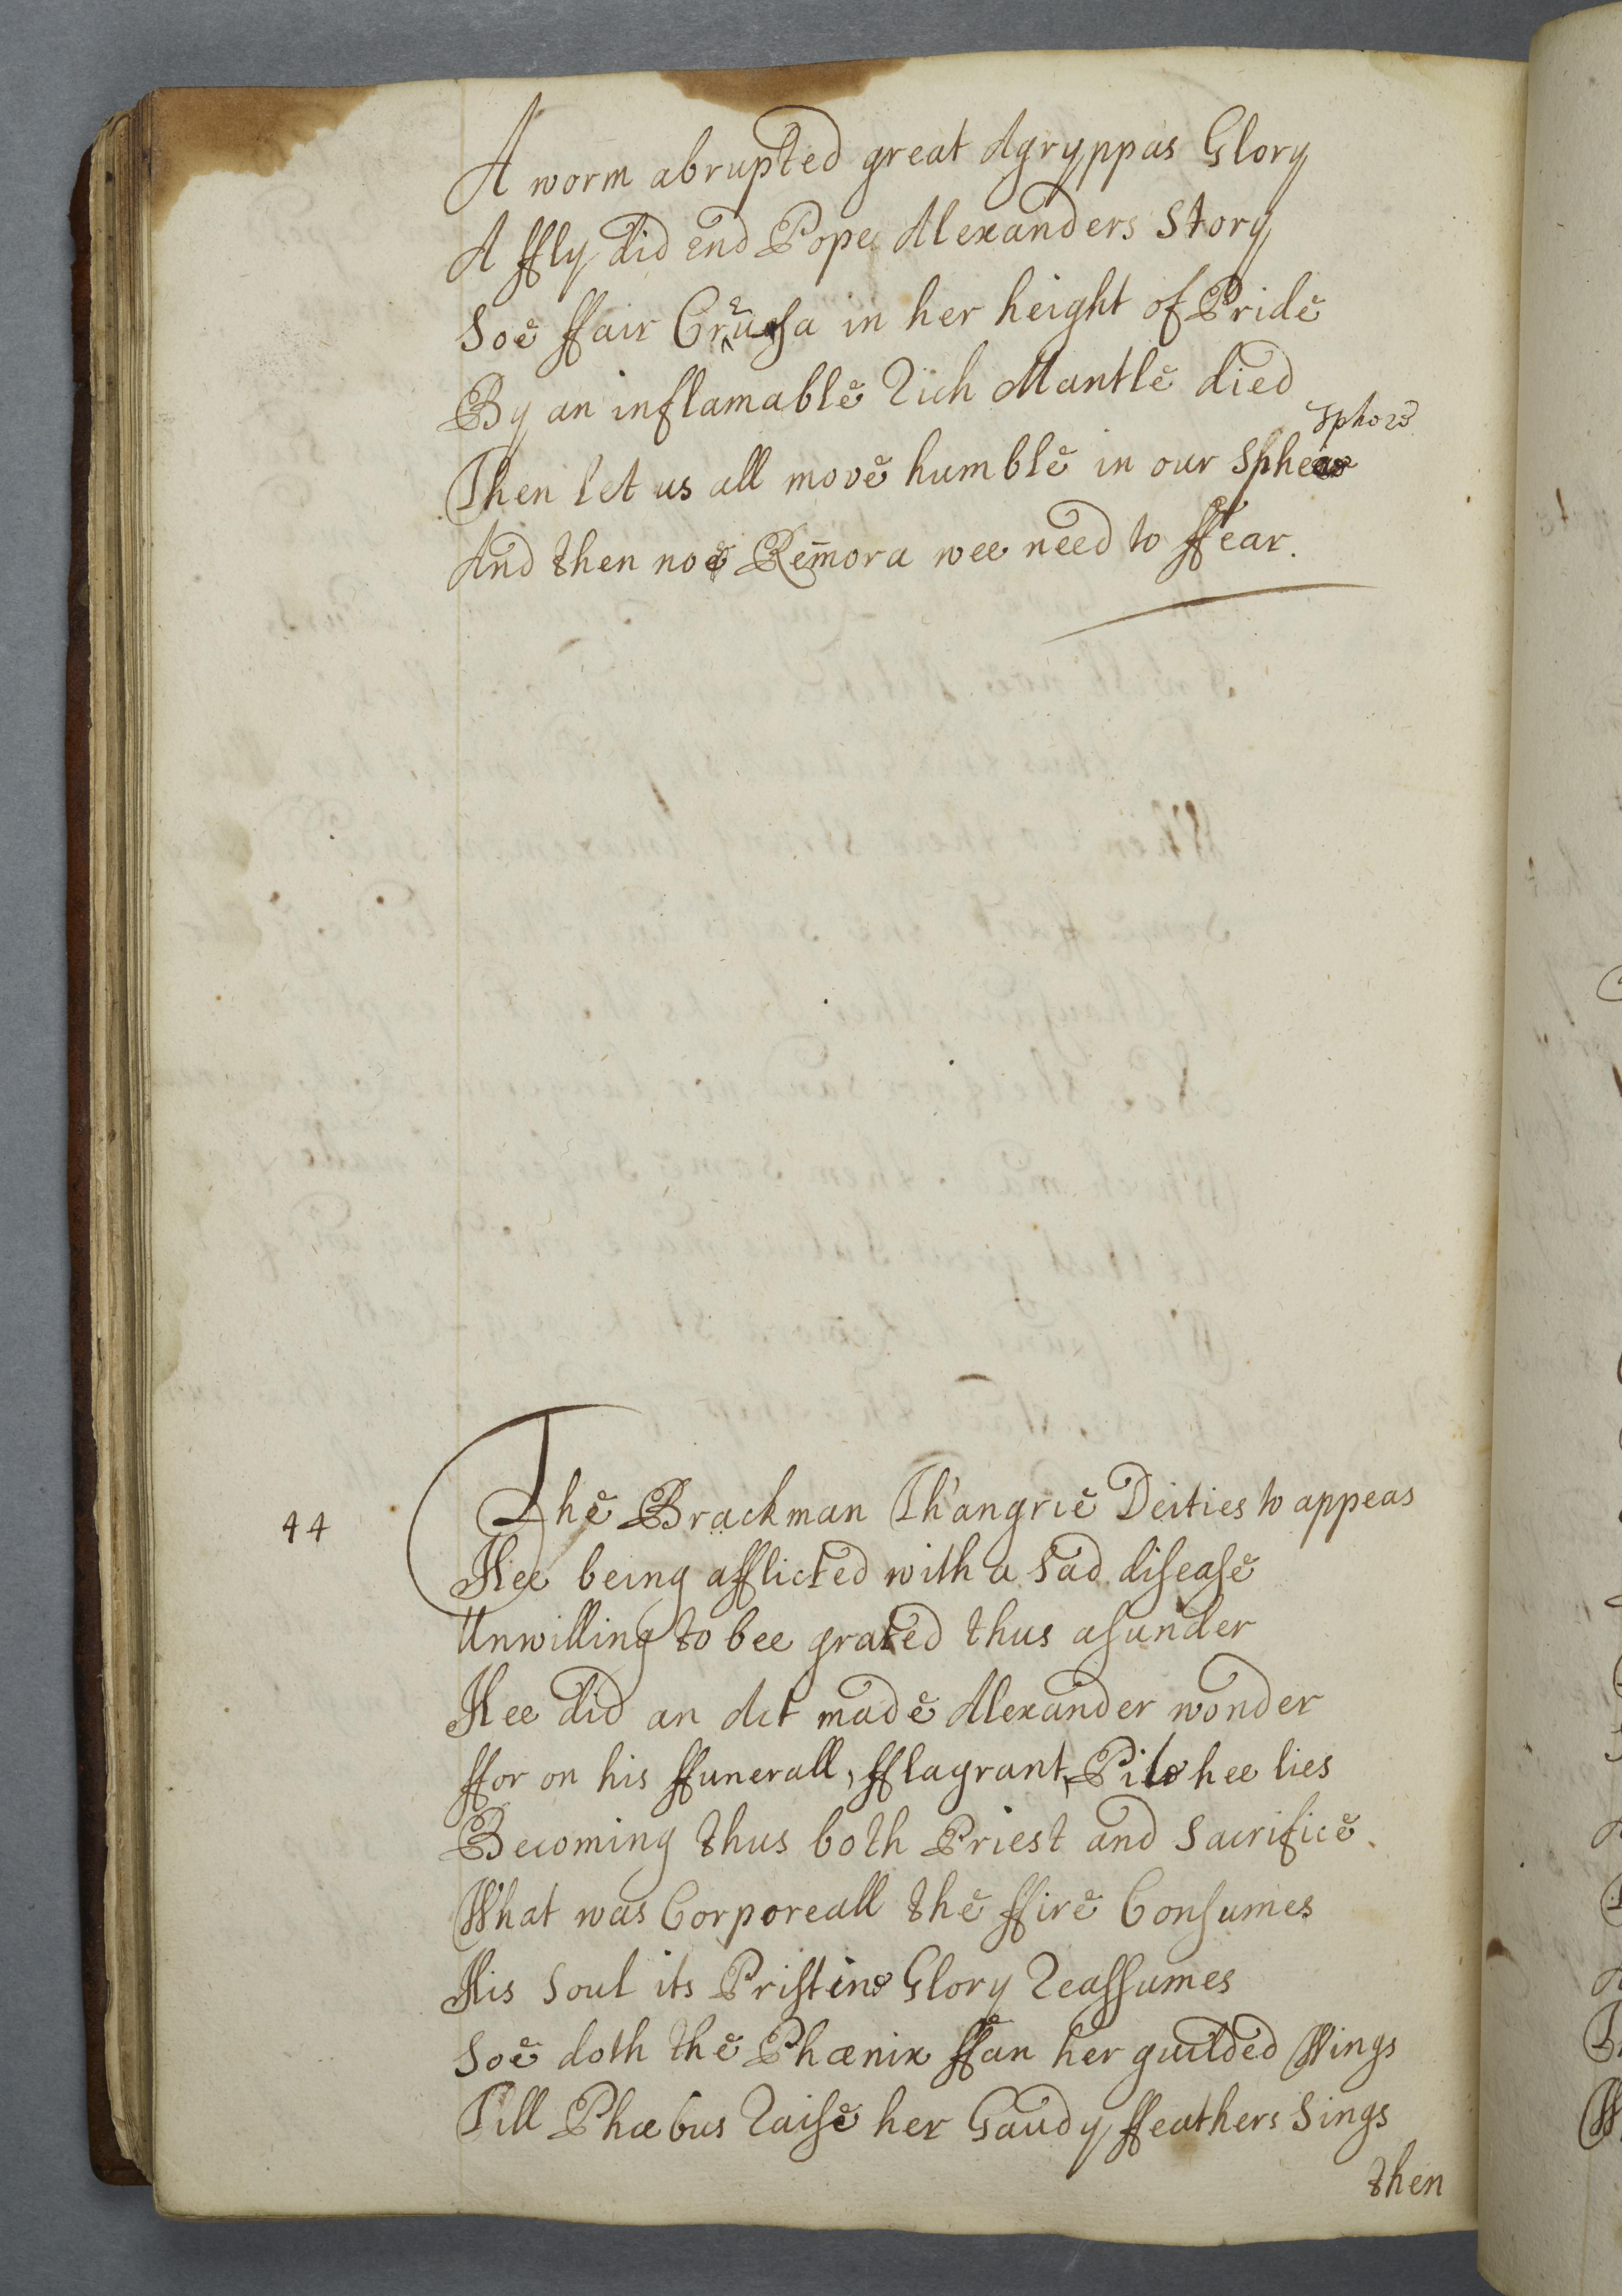 A worm abrupted great Agryppas Glory
A ffly did end Pope Alexanders Story
Soe ffair Creusa in her height of Pride
By an inflamable Rich Mantle died
Sphere
Then let us all move humble in our Sphear
And then noe Remora wee need to ffear.
44
The Brackman Th'angrie Deities to appeas
Hee being afflicted with a Sad disease
Unwilling to bee grated thus asunder
Hee did an Act made Alexander wonder
ffor on his ffunerall, fflagrant, Pile hee lies
Becoming thus both Priest and Sacrifice.
What was Corporeall the ffire Consumes
His Soul its Pristine Glory Reassumes
Soe doth the Phœnix ffan her guilded Wings
Till Phœbus Raise her Gaudy ffeathers Sings
then